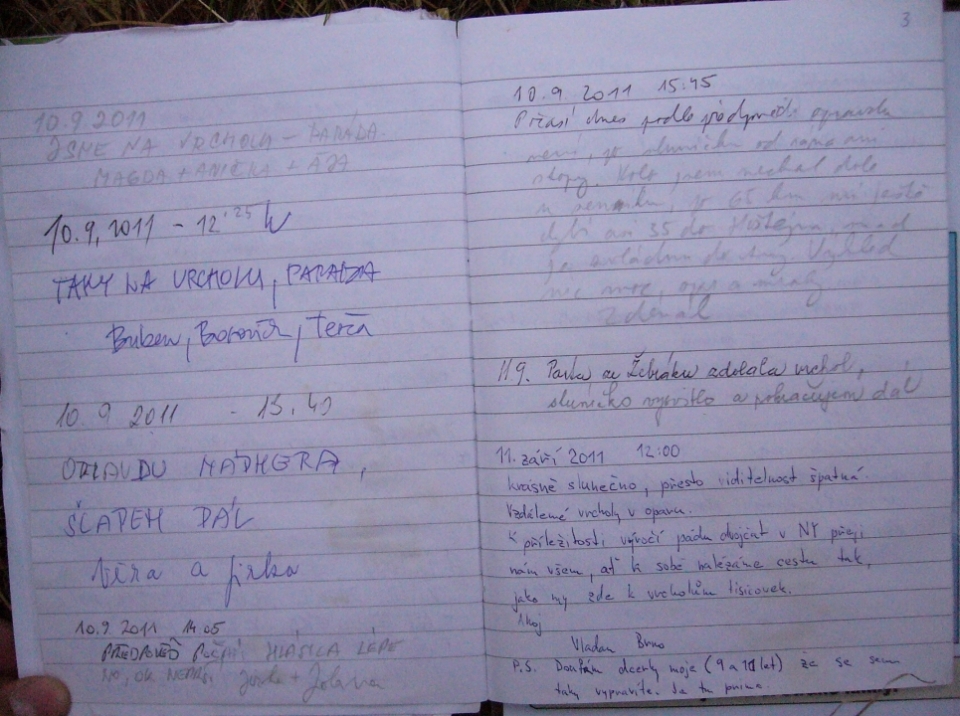 10.9.2011
JSME NA VRCHOLU - PARÁDA
MAGDA + ANIČKA + AJA
10.9.2011 - 12:25 h
TAKY NA VRCHOLU, PARÁDA
Buben, Terča
10.9 2011 - 13.40
OPRAVDU NÁDHERA,
ŠLAPEM DÁL
Věra a Jirka
10.9.2011 14 05
PŘEDPOVĚĎ POČASÍ HLÁSILA LÉPE
NO, OK NEPRŠÍ
3
10.9 2011 15:45
Počasí dnes podle předpovědi opravdu
není, po sluníčku od rána ani
stopy. Kolo jsem nechal dole
u 65 km mi ještě
chybí asi 35 do Hoštejna, snad
to zvládnu do tmy. Výhled
nic moc, opar a mraky
Zdenál
11.9. Parta ze Žebráku zdolala vrchol,
sluníčko vysvitlo a pokračujem dál
11. září 2011 12:00
krásně slunečno, přesto viditelnost špatná.
Vzdálené vrcholy v oparu.
K příležitosti výročí pádu dvojčat v NY přeji
nám všem, ať k sobě nalézáme cestu tak,
jako my zde k vrcholům tisícovek.
Ahoj
Vladan Brno
P.S. Doufám dcerky moje (9 a 11 let) že se sem
taky vypravíte. Je tu prima.